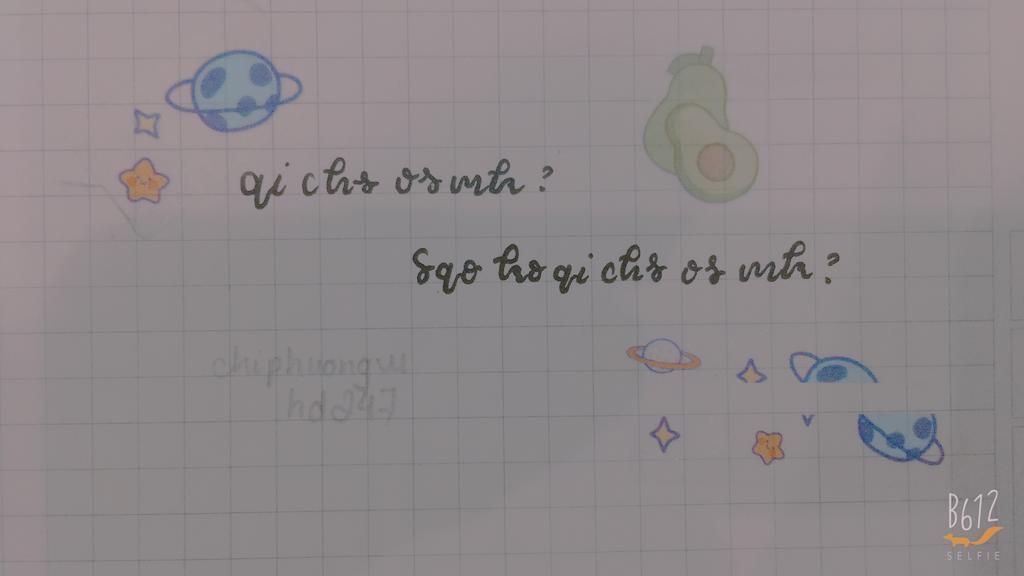 qi chs os mh?
Sqo hoqi chs os mh?
chiphuongvu
hd247
B612
SELFIE